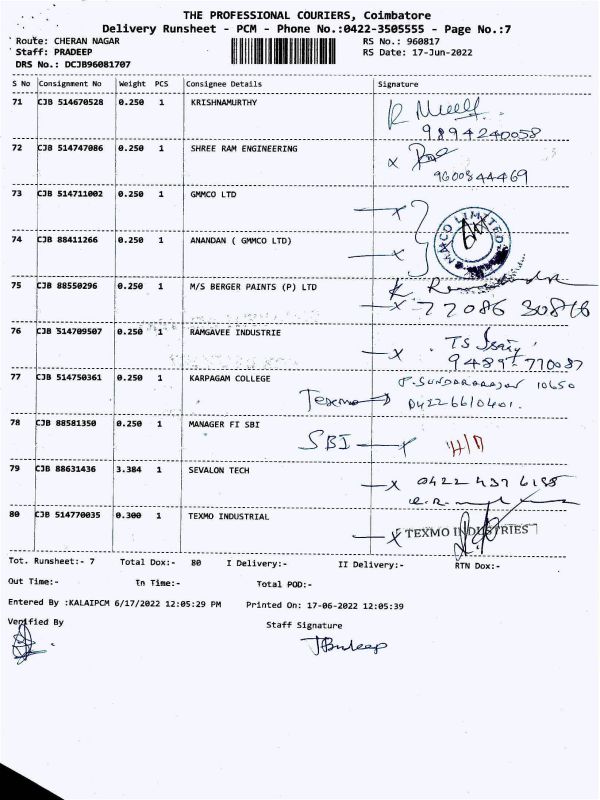 THE PROFESSIONAL COURIERS, Coimbatore
Delivery Runsheet - PCM - Phone No.:0422-3505555 - Page No.:7
Route: CHERAN NAGAR RS No.: 960817
Staff: PRADEEP RS Date: 17-Jun-2022
DRS No.: DCJB96081707
S No Consignment No Weight PCS Consignee Details Signature
71 CJB 514670528 0.250 1 KRISHNAMURTHY
9894240058
72 CJB 514747086 0.250 1 SHREE RAM ENGINEERING x
9600844469
73 CJB 514711002 0.250 1 GMMCO LTD x
74 CJB 88411266 0.250 1 ANANDAN ( GMMCO LTD) x
LIMITED
75 CJB 88550296 0.250 1 M/S BERGER PAINTS (P) LTD
x 77086 30866
76 CJB 514709507 0.250 1 RAMGAVEE INDUSTRIE
x 94897-770087
77 CJB 514750361 0.250 1 KARPAGAM COLLEGE P. SUNDARARAJAN 10650
Texmo 04226610401.
78 CJB 88581350 0.250 1 MANAGER FI SBI
SBI x
79 CJB 88631436 3.384 1 SEVALON TECH x 0422 437 6188
80 CJB 514770035 0.300 1 TEXMO INDUSTRIAL x TEXMO INDUSTRIES
Tot. Runsheet:- 7 Total Dox:- 80 I Delivery:- II Delivery:- RTN Dox:-
Out Time:- In Time:- Total POD:-
Entered By :KALAIPCM 6/17/2022 12:05:29 PM Printed On: 17-06-2022 12:05:39
Verified By Staff Signature